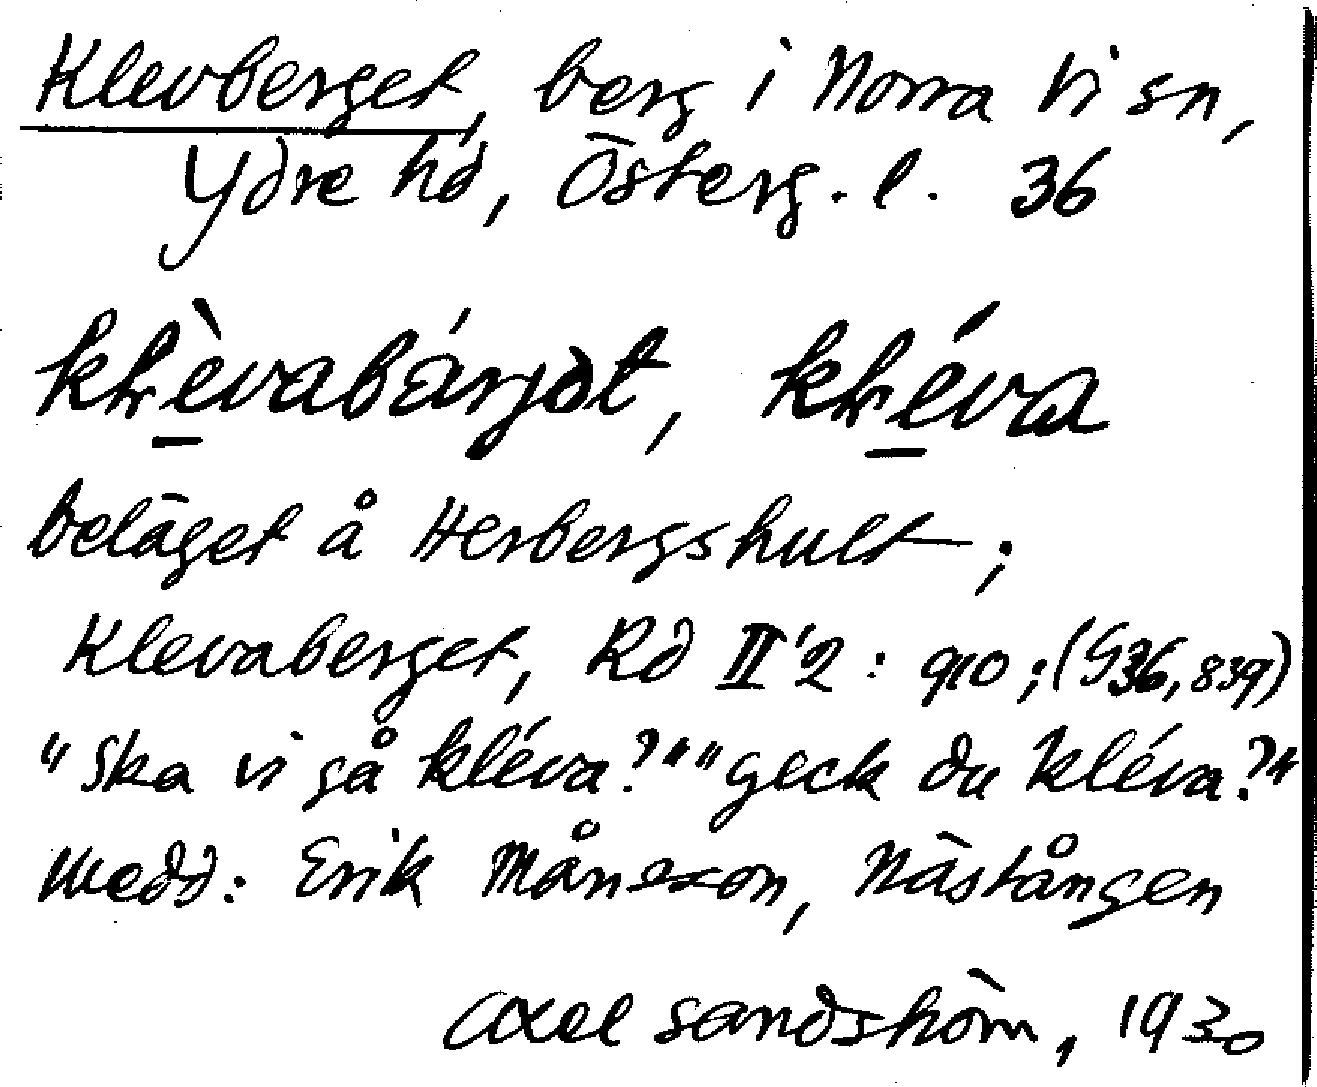 Klevberget, berg i Norra Vi sn,
Ydre hd, Österg. l. 36
klèvabárjət, kléva
beläget å Herbergshult;
Klevaberget, Rd II'2: 910; (S36, 839)
"Ska vi gå kléva?" "geck du kléva?"
Medd: Erik Månsson, Nästången
Axel Sandström, 1930